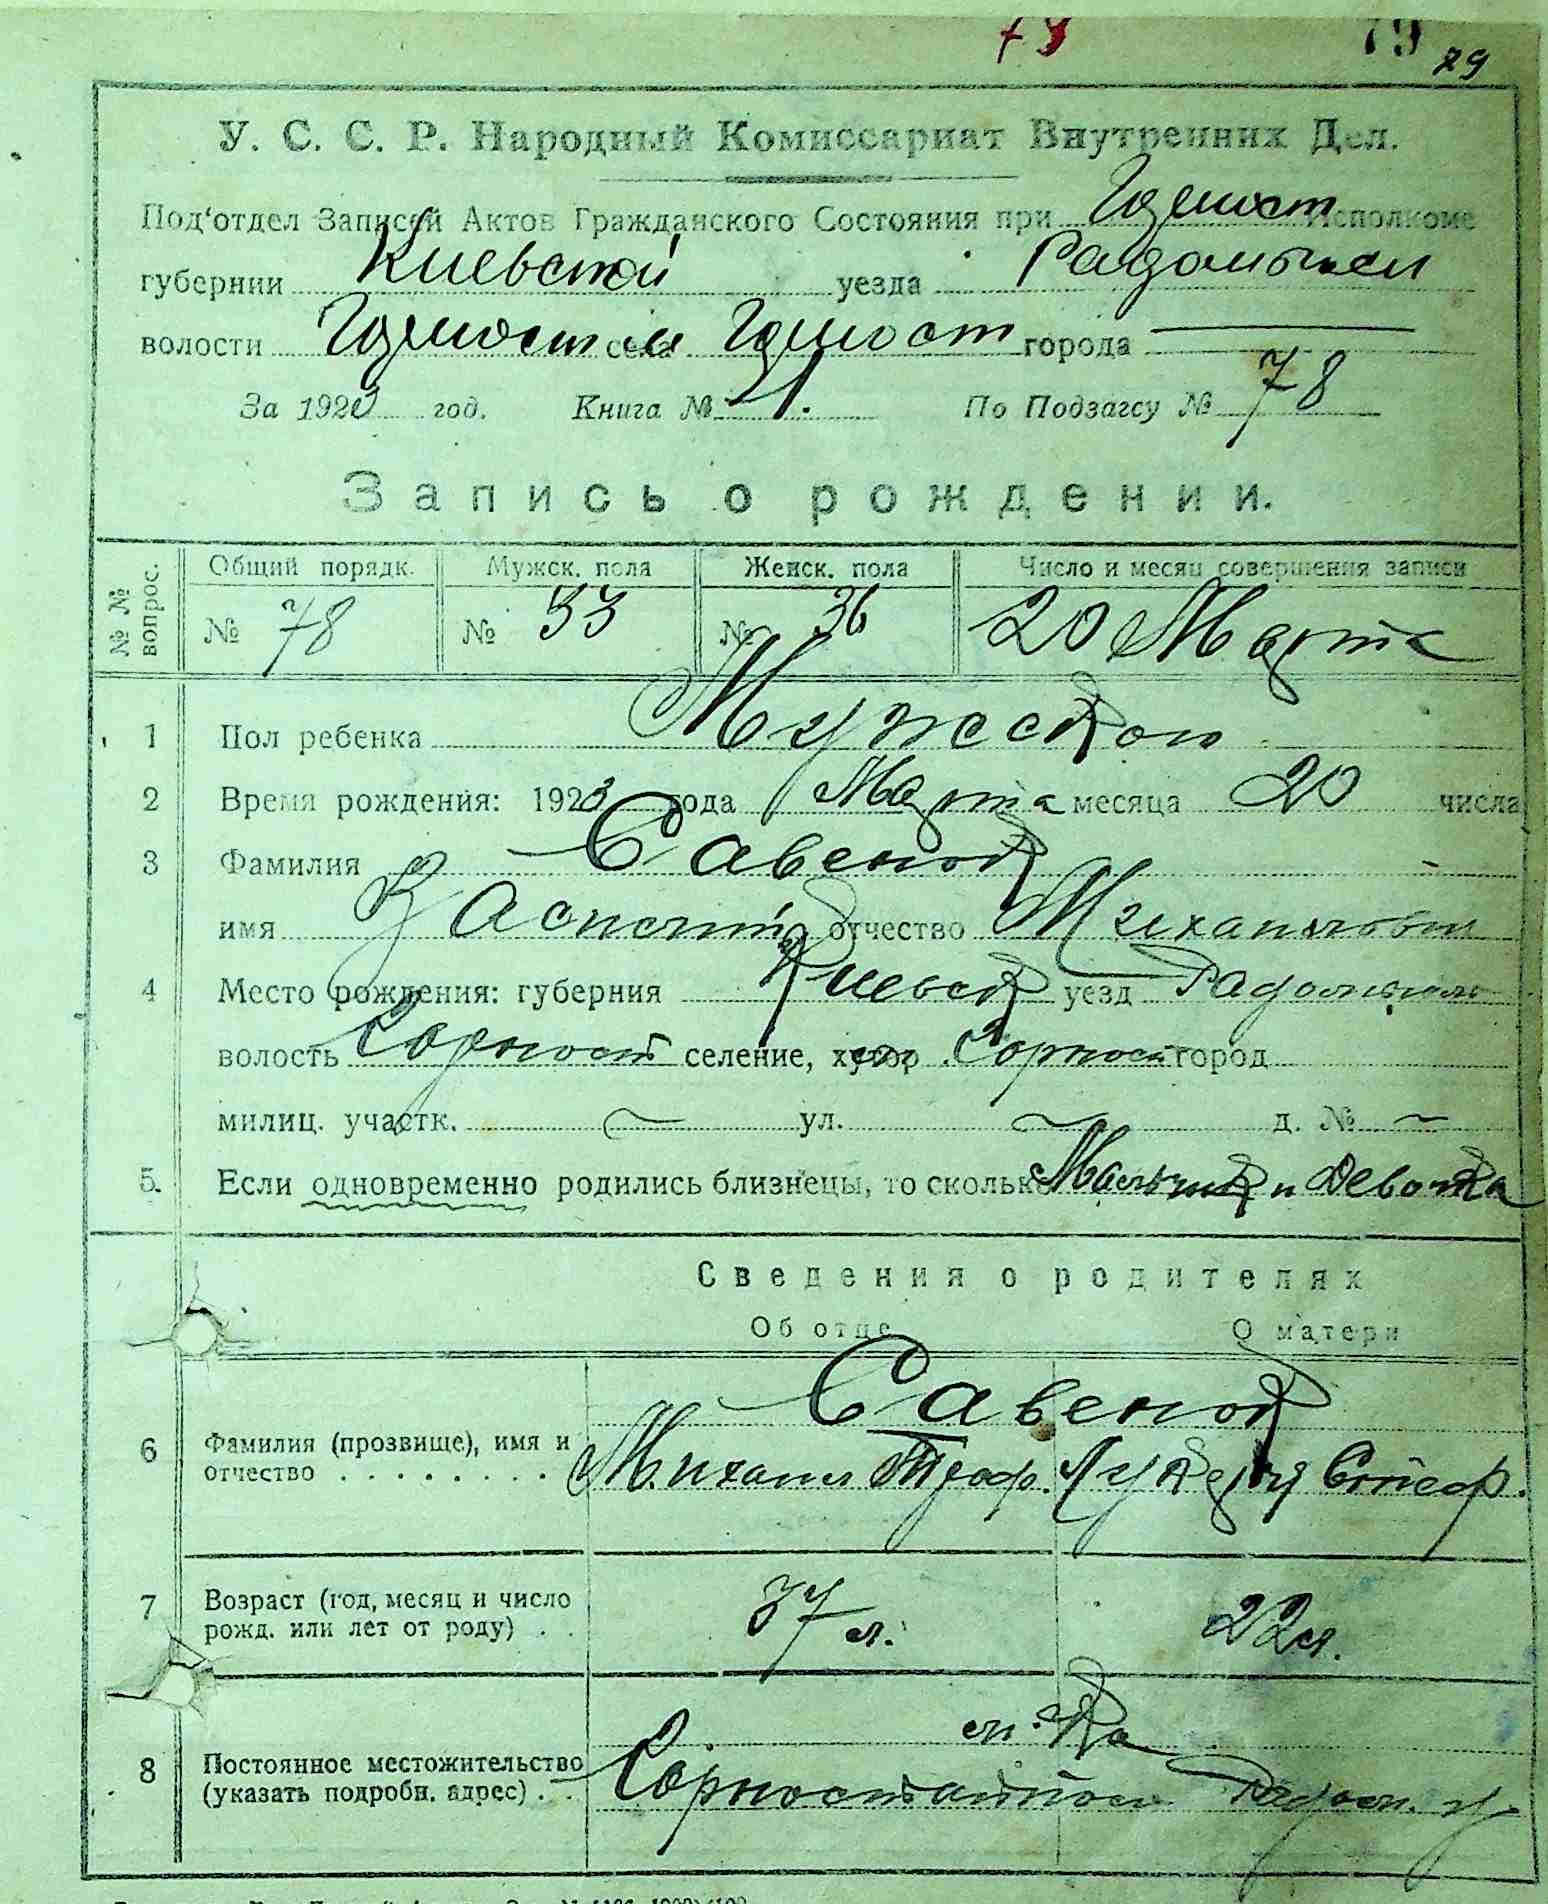 79 29
У. С. С. Р. Народный Комиссариат Внутренних Дел.
Под'отдел Записей Актов Гражданского Состояния при Горност Исполкоме
губернии Киевской уезда Радомысл
волости Горност м села Горност города —
За 1923 год. Книга № 1. По Подзагсу № 78
Запись о рождении.
№ № вопрос. Общий порядк. Мужск. пола Женск. пола Число и месяц совершения записи
№ 78 № 33 № 36 20 Марта
1 Пол ребенка Мужской
2 Время рождения: 1923 года Марта месяца 20 числа
3 Фамилия Савенок
имя отчество Михайлович
4 Место рождения: губерния Киевск уезд Радомысль
волость Горност селение, хутор Горност город
милиц. участк. ~ ул. ~ д. № ~
5. Если одновременно родились близнецы, то сколько Мальчик и Девочка
Сведения о родителях
Об отце О матери
Савенок
6 Фамилия (прозвище), имя и
отчество . . . . . . . . Михаил Троф. Лукерия Стеф.
7 Возраст (год, месяц и число
рожд. или лет от роду) . . 37 л. 22 л.
м-ка
8 Постоянное местожительство
(указать подробн. адрес) . . Горностайпол Радом. у